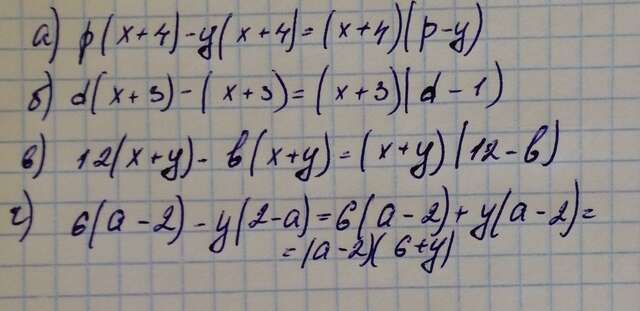 а) p(x+4)-y(x+4)=(x+4)(p-y)
б) d(x+3)-(x+3)=(x+3)(d-1)
в) 12(x+y)-b(x+y)=(x+y)(12-b)
г) 6(a-2)-y(2-a)=6(a-2)+y(a-2)=
=(a-2)(6+y)